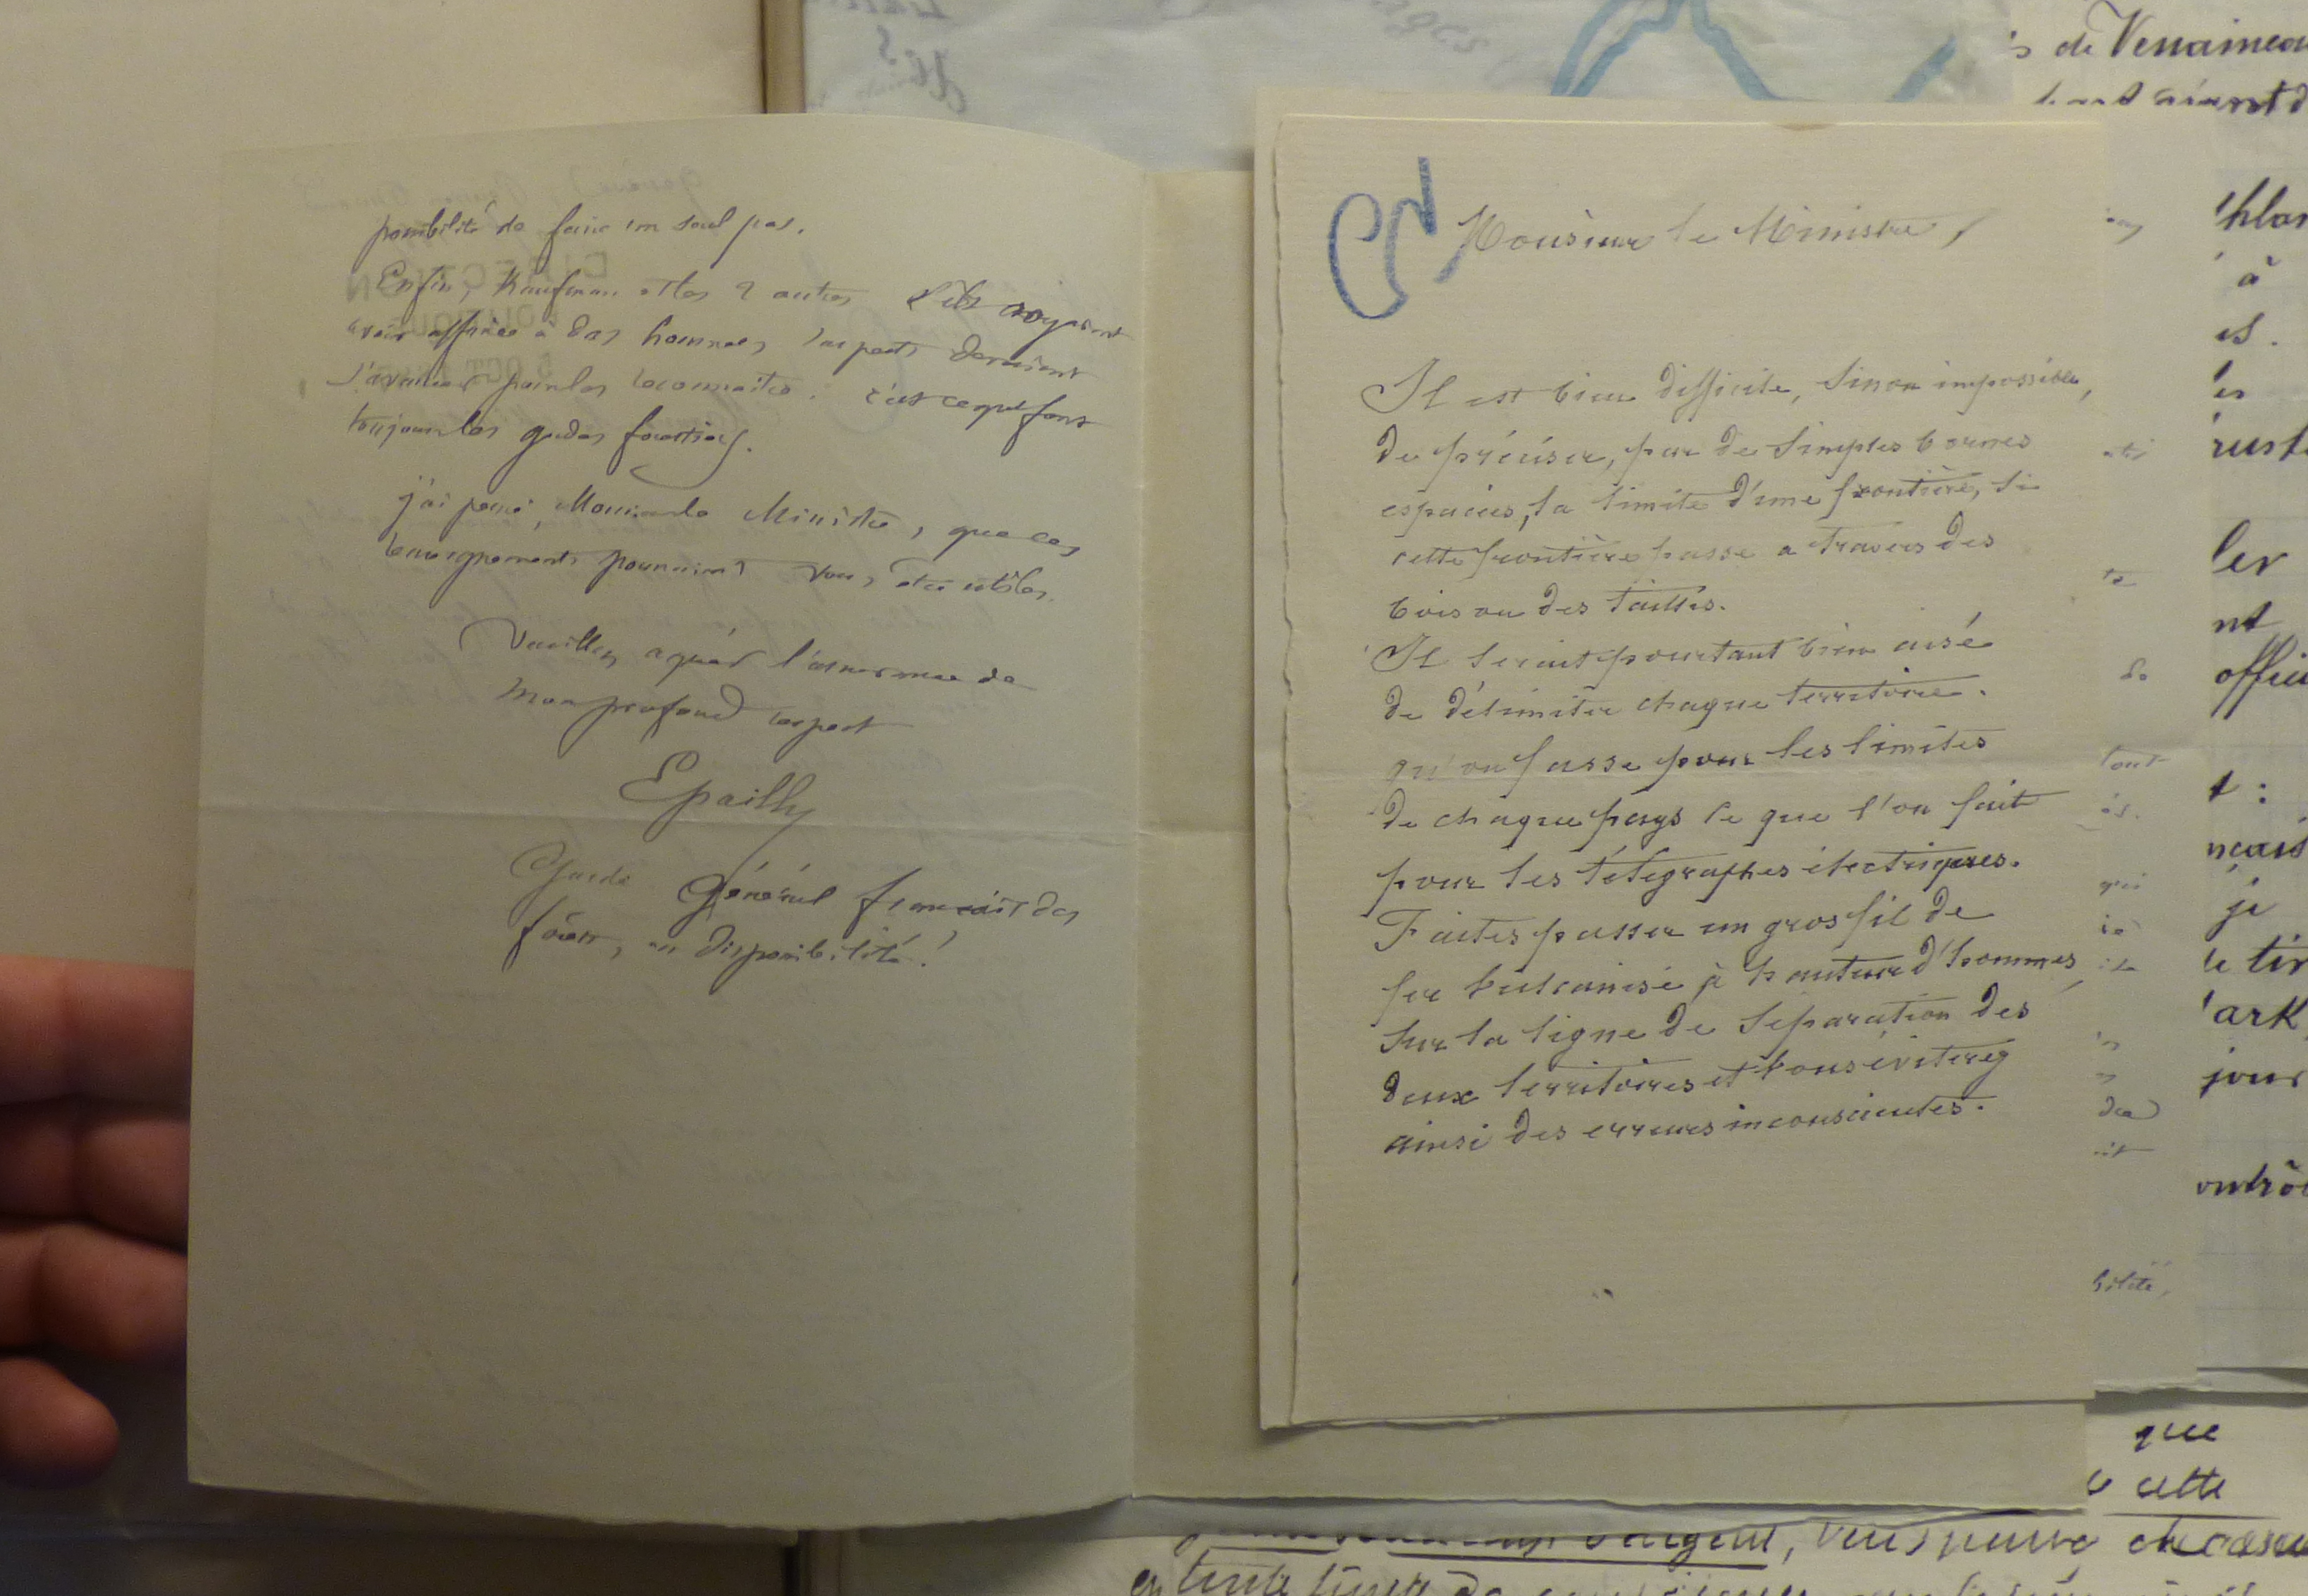 possibilité de faire un seul pas.
Enfin, Kaufman et les 2 autres s'ils croyaient
avoir affaire à des hommes suspects devaient
s'avancer pour les reconnaître : c'est ce que font
toujours les gardes forestiers.
j'ai pensé, Monsieur le Ministre, que ces
renseignements pourraient vous être utiles.
Veuillez agréer l'assurance de
mon profond respect
Epailly
Garde Général français des
forêts, en disponibilité !
Monsieur le Ministre,
Il est bien difficile, sinon impossible,
de préciser, par de simples bornes
espacées, la limite d'une frontière, si
cette frontière passe a travers des
bois ou des taillis.
Il serait pourtant bien aisé
de délimiter chaque territoire.
qu'on fasse pour les limites
de chaque pays ce que l'on fait
pour les télégraphes électriques.
Faites passer un gros fil de
fer vulcanisé à hauteur d'hommes,
sur la ligne de séparation des
deux territoires et vous éviterez
ainsi des erreurs inconscientes.
de
à
es.
ler
nt
t :
je
le tir
jour
que
cette